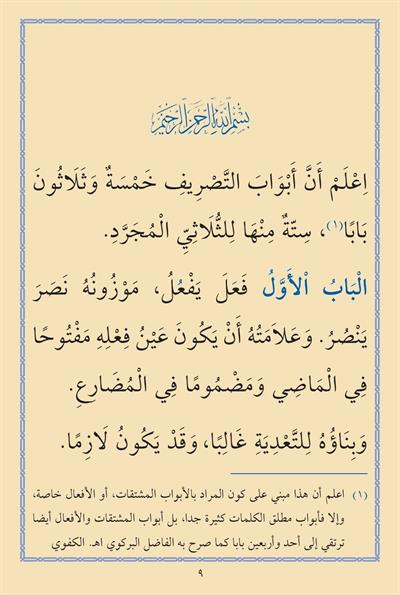 بسم الله الرحمن الرحيم
اِعْلَمْ أَنَّ أَبْوَابَ التَّصْرِيفِ خَمْسَةٌ وَثَلَاثُونَ
بَابًا(١)، سِتَّةٌ مِنْهَا لِلثُّلَاثِيِّ الْمُجَرَّدِ.
الْبَابُ الْأَوَّلُ فَعَلَ يَفْعُلُ، مَوْزُونُهُ نَصَرَ
يَنْصُرُ. وَعَلَامَتُهُ أَنْ يَكُونَ عَيْنُ فِعْلِهِ مَفْتُوحًا
فِي الْمَاضِي وَمَضْمُومًا فِي الْمُضَارِعِ.
وَبِنَاؤُهُ لِلتَّعْدِيَةِ غَالِبًا، وَقَدْ يَكُونُ لَازِمًا.
(١) اعلم أن هذا مبني على كون المراد بالأبواب المشتقات، أو الأفعال خاصة،
وإلا فأبواب مطلق الكلمات كثيرة جدا، بل أبواب المشتقات والأفعال أيضا
ترتقي إلى أحد وأربعين بابا كما صرح به الفاضل البركوي اهـ. الكفوي
٩